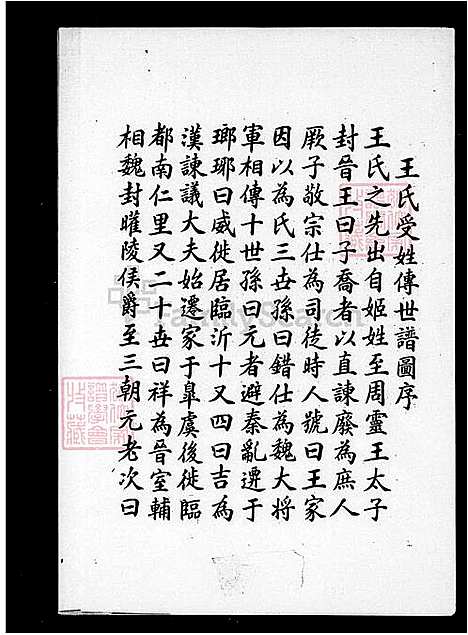 王氏受姓傳世譜圖序
王氏之先出自姬姓至周靈王太子
封晉王曰子喬者以直諫廢為庶人
厥子敬宗仕為司徒時人號曰王家
因以為氏三世孫曰錯仕為魏大將
軍相傳十世孫曰元者避秦亂遷于
瑯琊曰威徙居臨沂十又四曰吉為
漢諫議大夫始遷家于臯虞後徙臨
都南仁里又二十世曰祥為晉室輔
相魏封睢陵侯爵至三朝元老次曰
FamilySearch